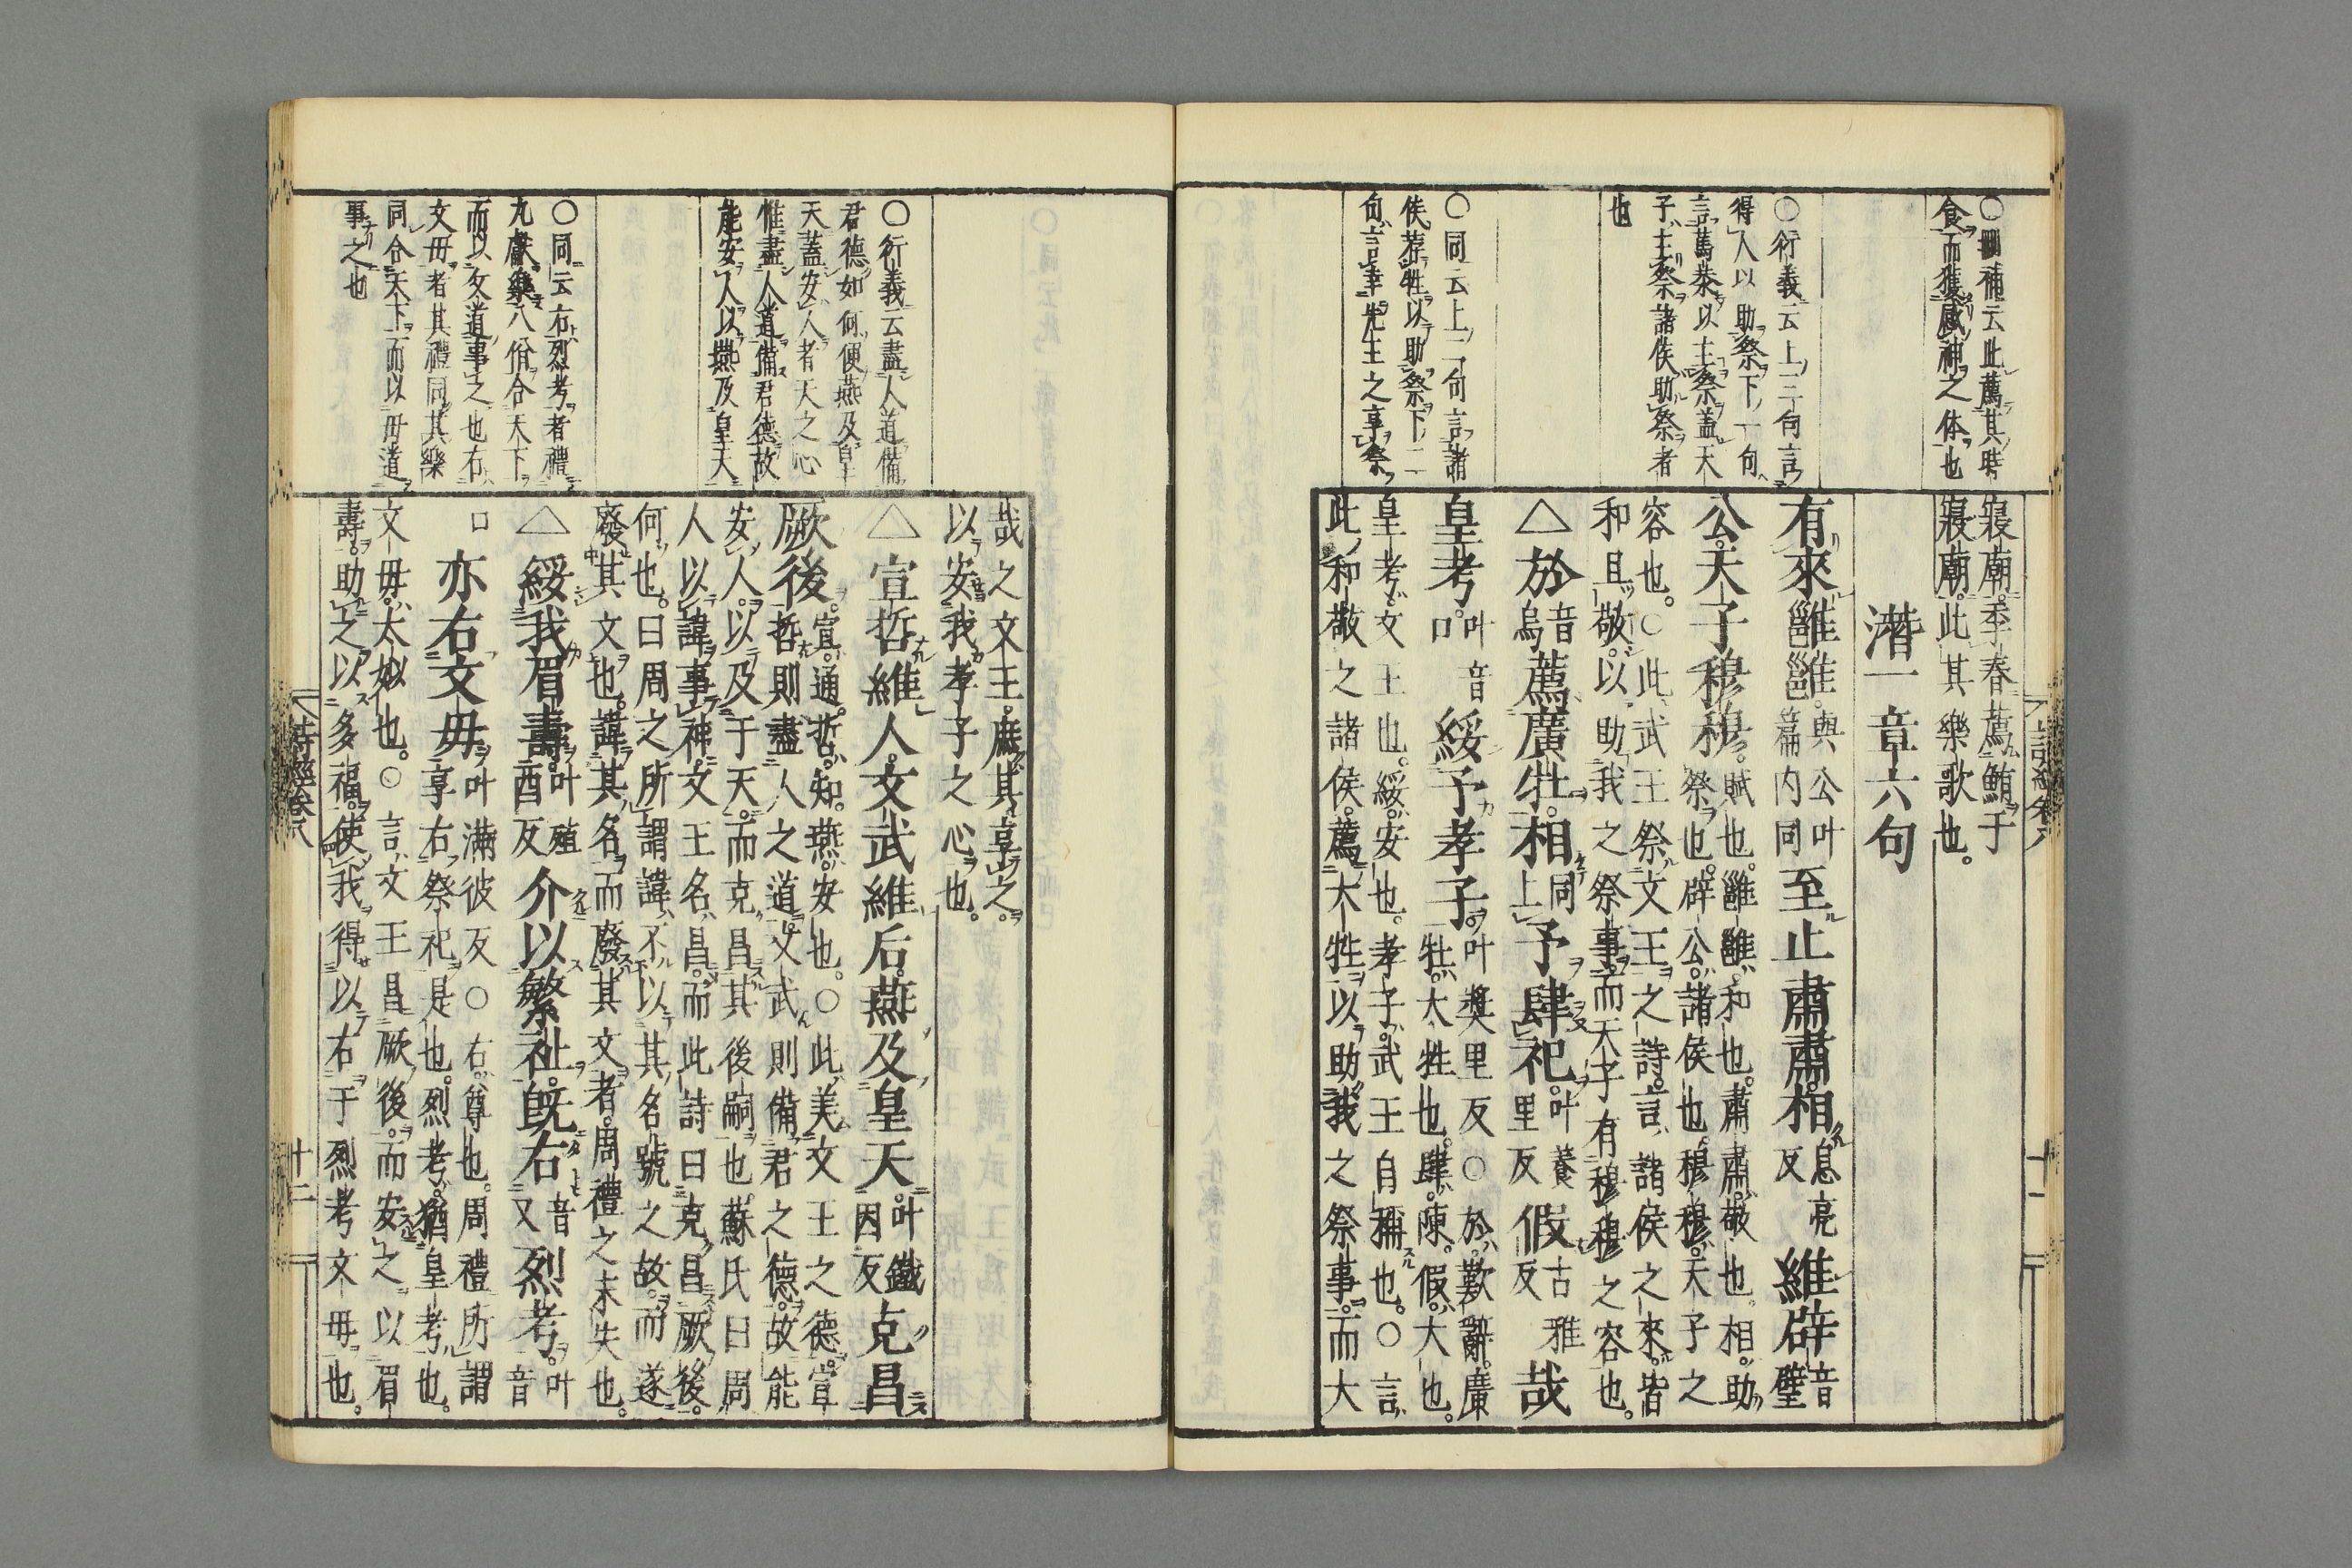 ○刪補云此薦其時
食而獲感神之体也
○衍義云上三句言
得人以助祭下一句
言篤恭以主祭蓋天
子主祭諸侯助祭者
也
○同云上二句言諸
侯荐牲以助祭下二
句言幸先王之享祭
寢廟。季春薦鮪于
寢廟。此其樂歌也。
潛一章六句
有來雝雝。與公叶篇內同至止肅肅。相息亮反維辟音璧
公。天子穆穆。賦也。雝雝。和也。肅肅。敬也。相。助祭也。辟公。諸侯也。穆穆。天子之
容也。○此武王祭文王之詩。言諸侯之來。皆
和且敬。以助我之祭事。而天子有穆穆之容也。
△於音烏薦廣牡。相同上予肆祀。叶養里反假古雅反哉
皇考。叶音口綏予孝子。叶奬里反○於。歎辭。廣牡。大牲也。肆。陳。假。大也。
皇考。文王也。綏。安也。孝子。武王自稱也。○言
此和敬之諸侯。薦大牲。以助我之祭事。而大
○衍義云盡人道備
君德如何便燕及皇
天蓋安人者天之心
惟盡人道備君德故
能安人以燕及皇天
○同云右烈考者禮
九獻樂八佾合天下
而以父道事之也右
文毋者其禮同其樂
同合天下而以毋道
事之也
哉之文王。庶其享之。
以安我孝子之心也。
△宣哲維人。文武維后。燕及皇天。叶鐵因反克昌
厥後。宣。通。哲。知。燕。安也。○此美文王之德。宣
哲則盡人之道。文武則備君之德。故能
安人。以及于天。而克昌其後嗣也。蘇氏曰周
人以諱事神。文王名昌。而此詩曰克昌厥後。
何也。曰周之所謂諱、不以其名號之故。而遂
廢其文也。諱其名而廢其文者。周禮之末失也。
△綏我眉壽。叶殖酉反介以繁祉。旣右音又烈考。叶音
口亦右文毋。叶滿彼反○右。尊也。周禮所謂享右祭祀是也。烈考。猶皇考也。
文毋。太姒也。○言。文王昌厥後。而安之以眉
壽。助之以多福。使我得以右于烈考文毋也。
詩經卷八
十二